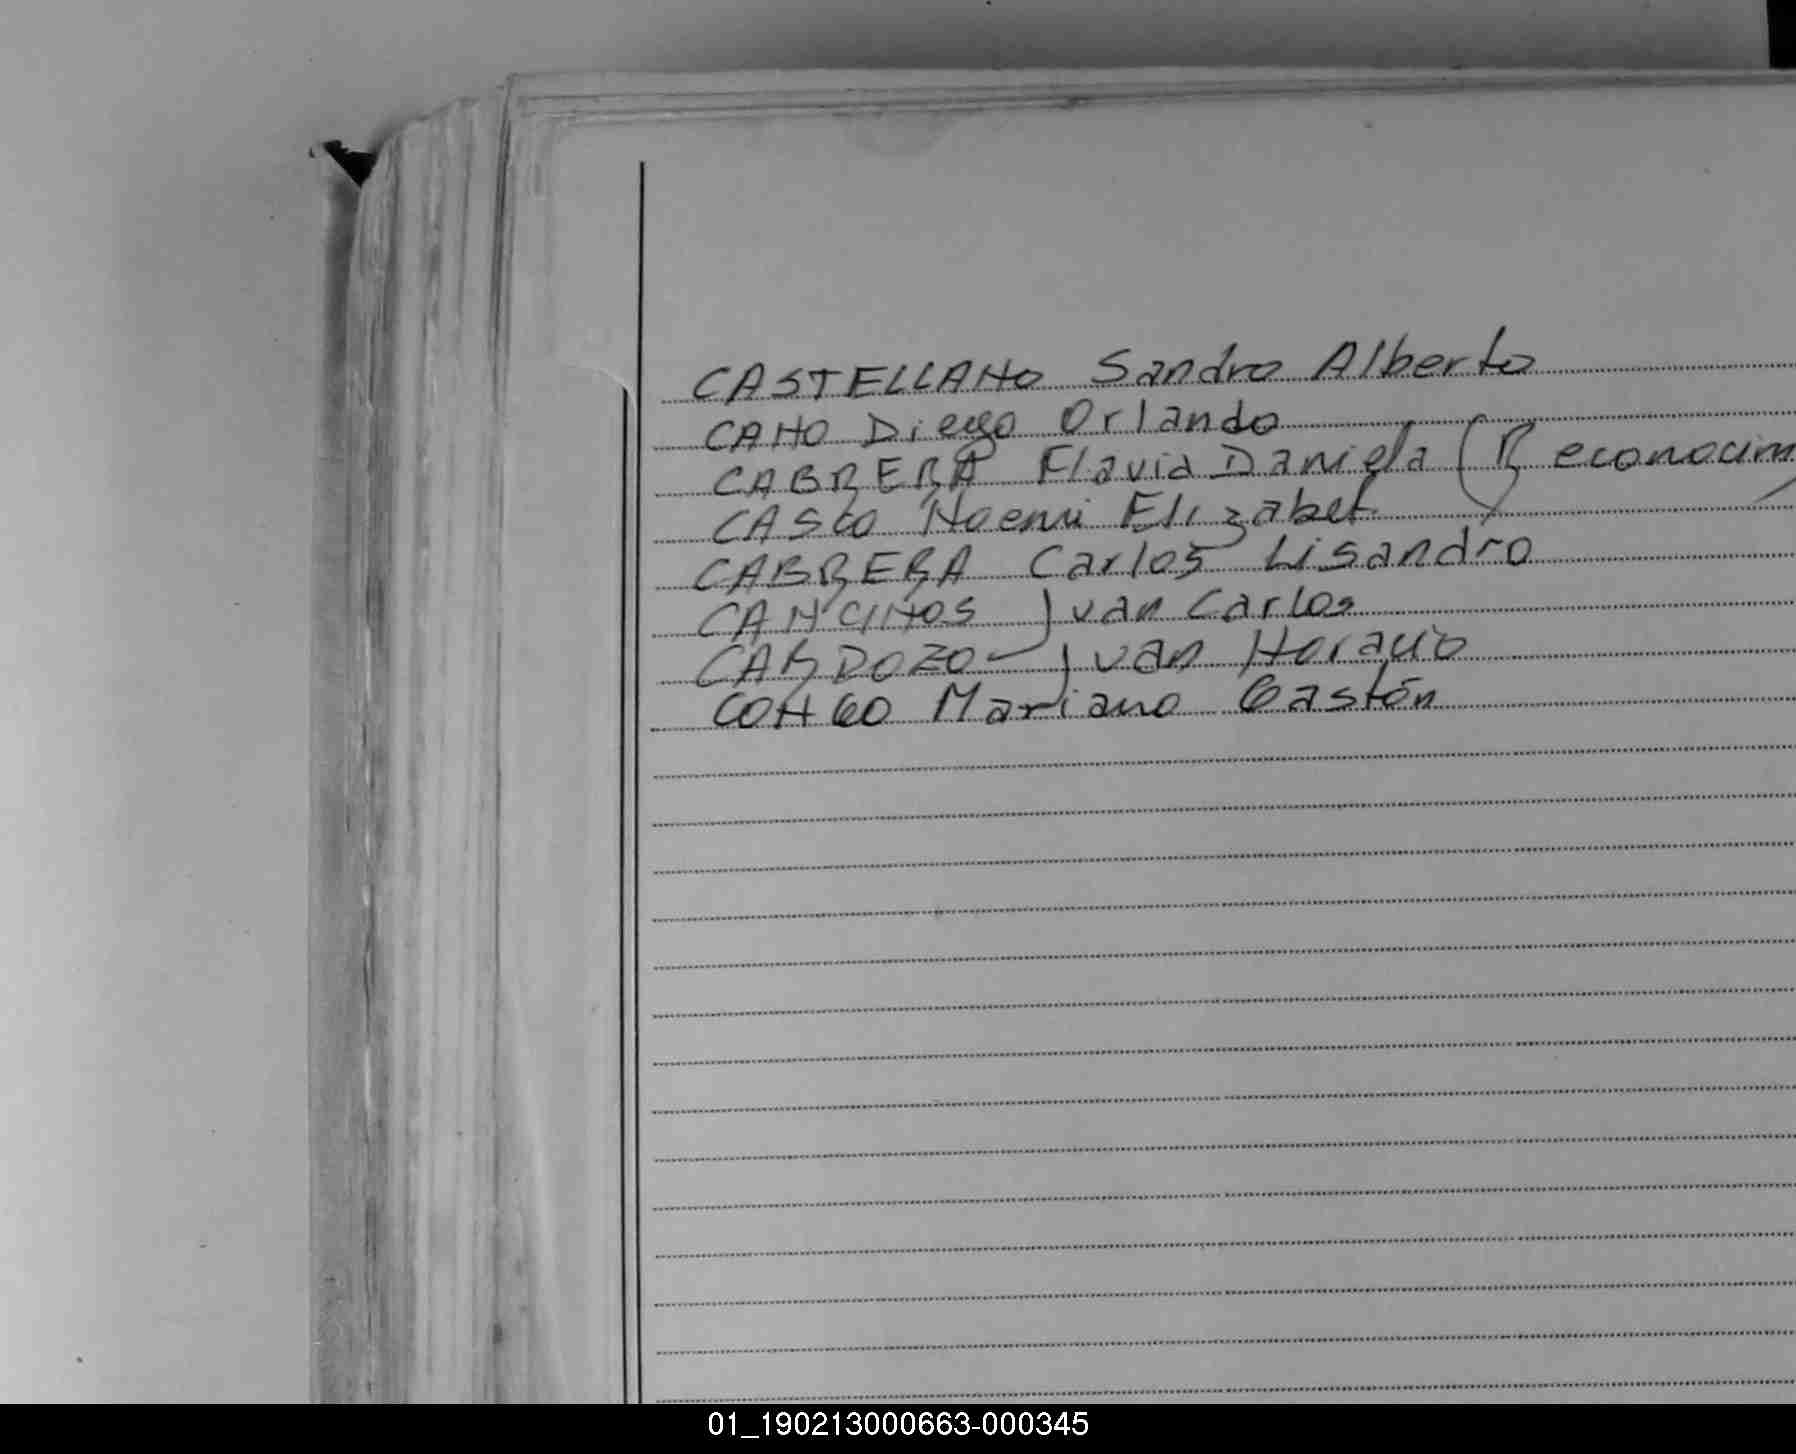 CASTELLANO Sandro Alberto
CANO Diego Orlando
CABRERA Flavia Daniela (Reconocim
CASCO Noemi Elizabet
CABRERA Carlos Lisandro
CANCINOS Juan Carlos
CARDOZO Juan Horacio
CONGO Mariano Gastón
01_190213000663-000345